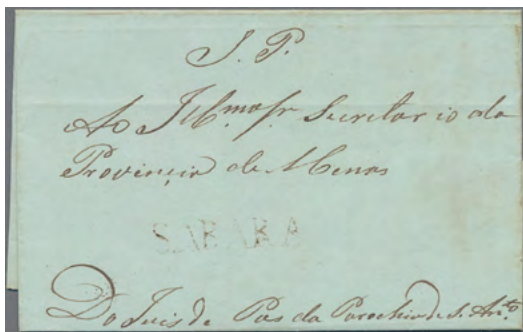 S. P.
Ao Illmo Sr. Secretario da
Provincia de Minas
SABARA
Do Juis de Pas da Parochia de S. Anto